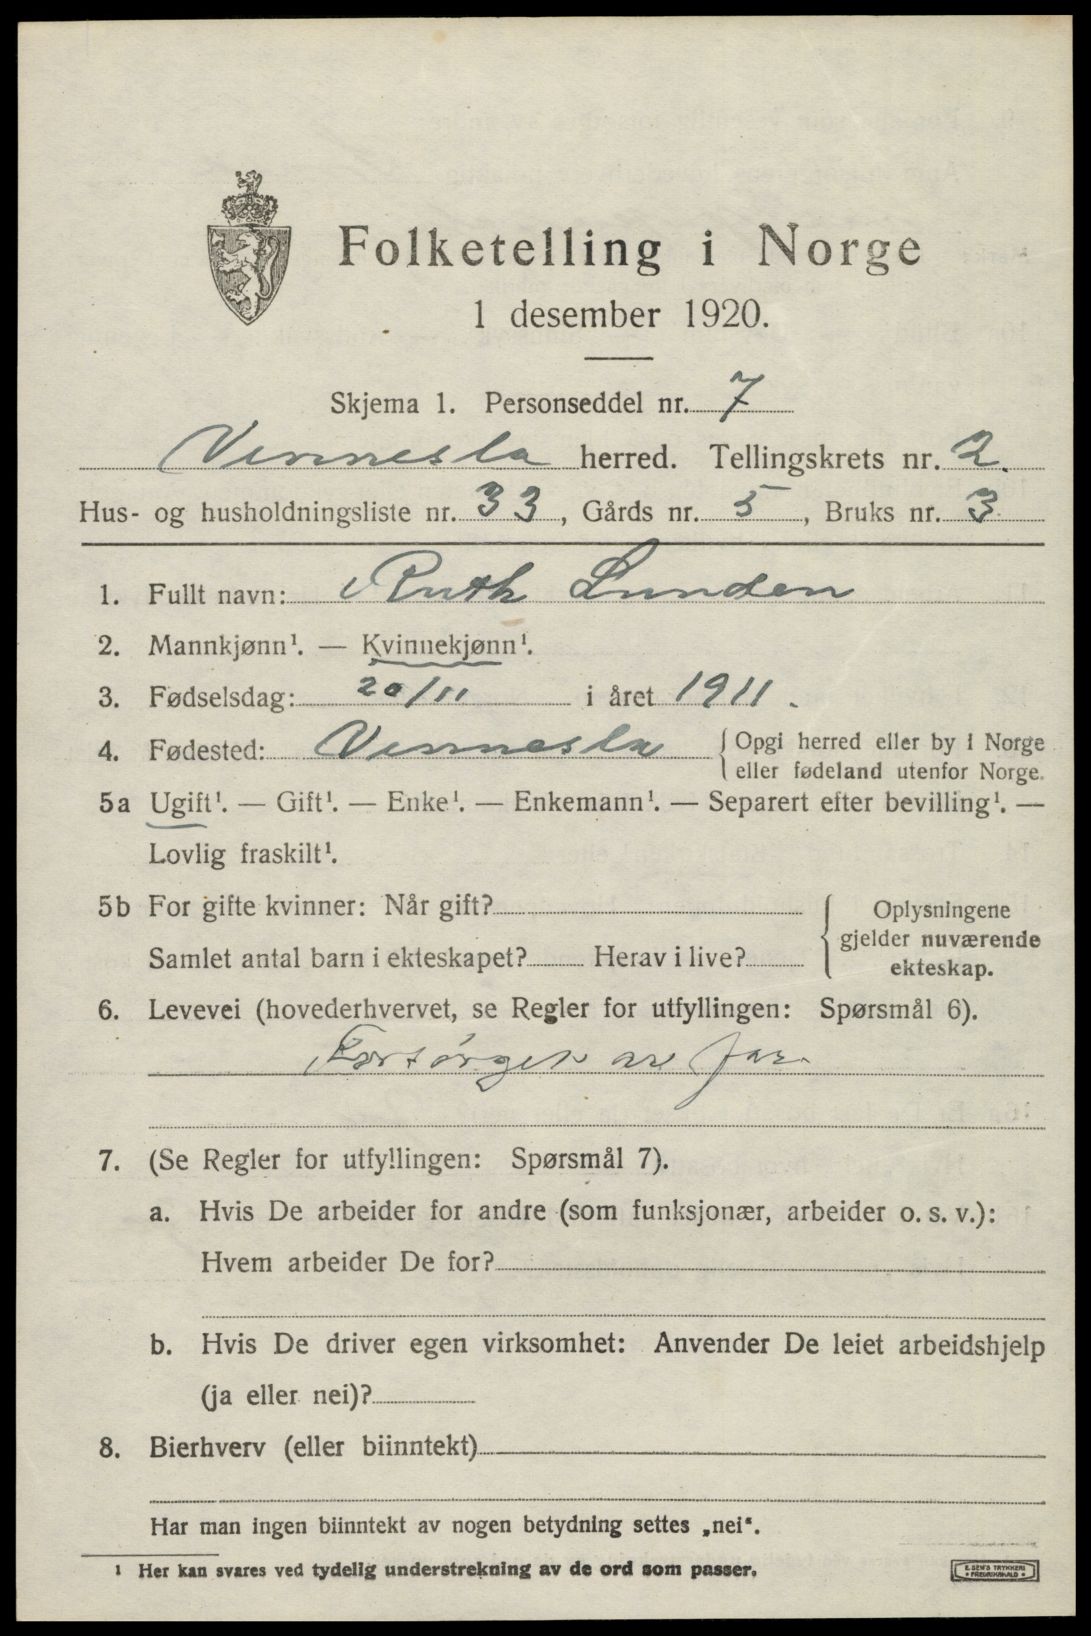 Folketelling i Norge
1 desember 1920.
Skjema 1. Personseddel nr. 7
Vennesla herred. Tellingskrets nr. 2.
Hus- og husholdningsliste nr. 33, Gårds nr. 5, Bruks nr. 3
1. Fullt navn: Ruth Lunden
2. Mannkjønn¹. — Kvinnekjønn¹.
3. Fødselsdag: 20/11 i året 1911.
4. Fødested: Vennesla { Opgi herred eller by i Norge
eller fødeland utenfor Norge.
5a Ugift¹. — Gift¹. — Enke¹. — Enkemann¹. — Separert efter bevilling¹. —
Lovlig fraskilt¹.
5b For gifte kvinner: Når gift?
Samlet antal barn i ekteskapet? Herav i live?
{ Oplysningene
gjelder nuværende
ekteskap.
6. Levevei (hovederhvervet, se Regler for utfyllingen: Spørsmål 6).
Forsörget av far.
7. (Se Regler for utfyllingen: Spørsmål 7).
a. Hvis De arbeider for andre (som funksjonær, arbeider o. s. v.):
Hvem arbeider De for?
b. Hvis De driver egen virksomhet: Anvender De leiet arbeidshjelp
(ja eller nei)?
8. Bierhverv (eller biinntekt)
Har man ingen biinntekt av nogen betydning settes „nei“.
¹ Her kan svares ved tydelig understrekning av de ord som passer.
E. SEM'S TRYKKERI
• FREDRIKSHALD •